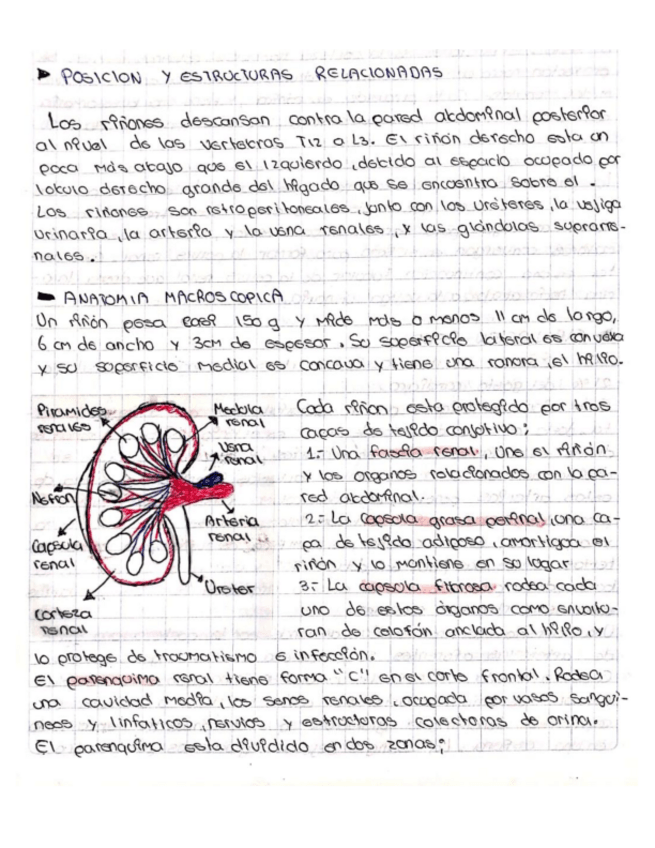 ► POSICION Y ESTRUCTURAS RELACIONADAS
Los riñones descansan contra la pared abdominal posterior
al nivel de las vertebras T12 a L3. El riñón derecho esta un
poca más abajo que el izquierdo, debido al espacio ocupado por
lobulo derecho grande del higado que se encuentra sobre el.
Los riñones son retroperitoneales, junto con los uréteres, la vejiga
urinaria, la arteria y la vena renales, y las glándulas suprarre-
nales.
- ANATOMIA MACROSCOPICA
Un riñón pesa casi 150 g y mide más o menos 11 cm de largo,
6 cm de ancho y 3cm de espesor. Su superficie lateral es convexa
y su superficie medial es concava y tiene una ranura, el hilio.
Piramides
renales
Medula
renal
Vena
renal
Nefron
Arteria
renal
Capsula
renal
Ureter
Corteza
renal
Cada riñon esta protegido por tres
capas de tejido conjutivo:
1.- Una fascia renal, une el riñón
y los organos relacionados con la pa-
red abdominal.
2.- La capsula grasa perinal, una ca-
pa de tejida adiposo, amortigua el
riñón y lo mantiene en su lugar
3.- La capsula fibrosa rodea cada
uno de estos órganos como envoltu-
ran de celofán anclada al hilio, y
lo protege de traumatismo e infección.
El parenquima renal tiene forma "C" en el corte frontal. Rodea
una cavidad media, los senos renales, ocupada por vasos sangui-
neos y linfaticos, nervios y estructuras colectoras de orina.
El parenquima esta dividido en dos zonas: